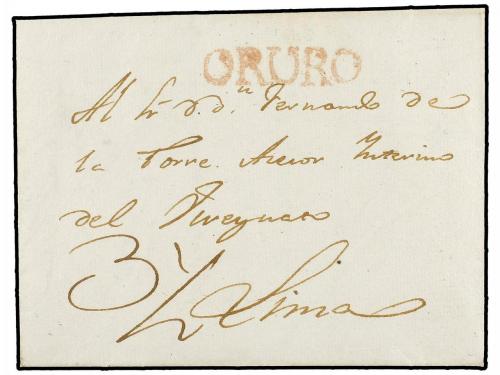 ORURO
Al Sr. d.n Fernando de
la Torre. Asesor Interino
del Vireynato
3½ Lima